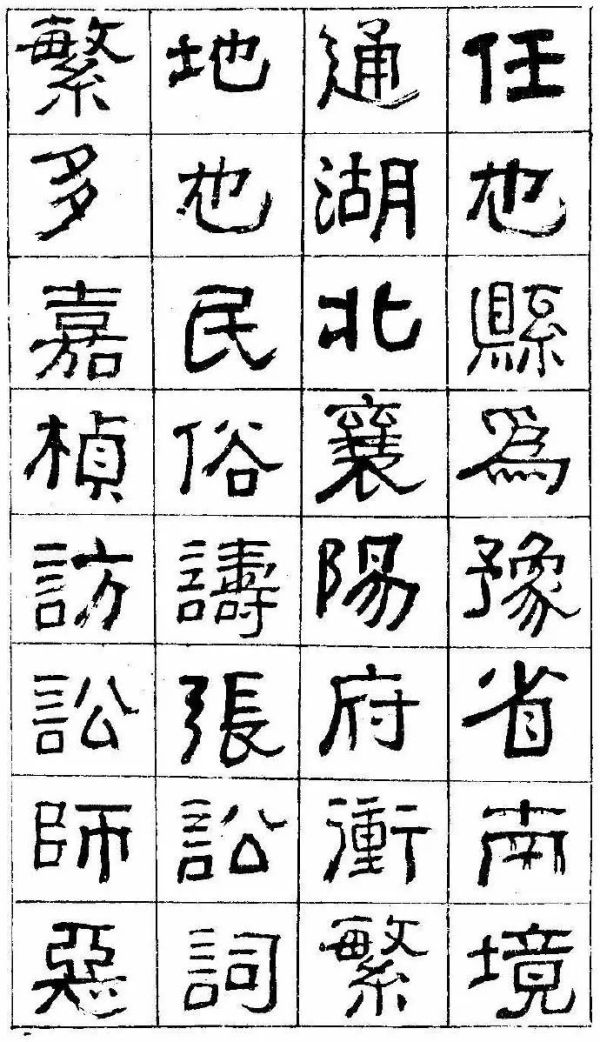 任也縣爲豫省南境
通湖北襄陽府衝繁
地也民俗譸張訟詞
繁多嘉楨訪訟師惡